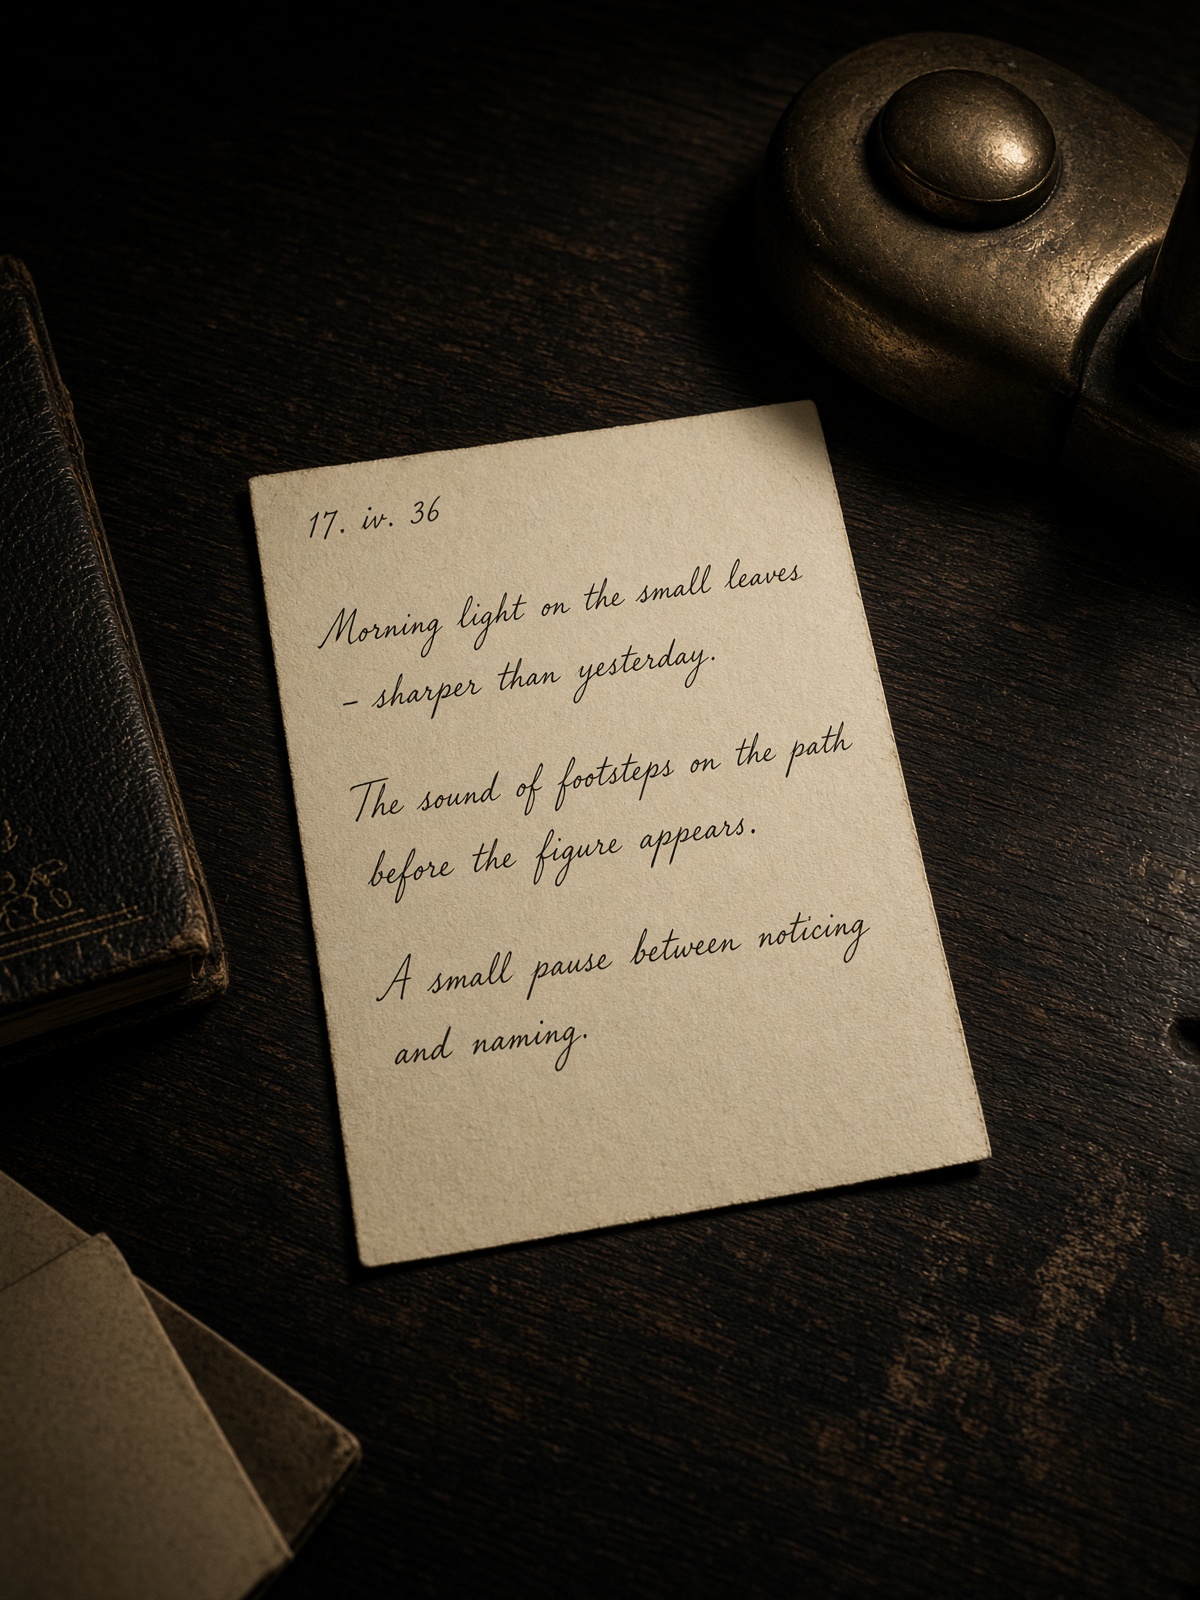 17. iv. 36
Morning light on the small leaves
– sharper than yesterday.
The sound of footsteps on the path
before the figure appears.
A small pause between noticing
and naming.